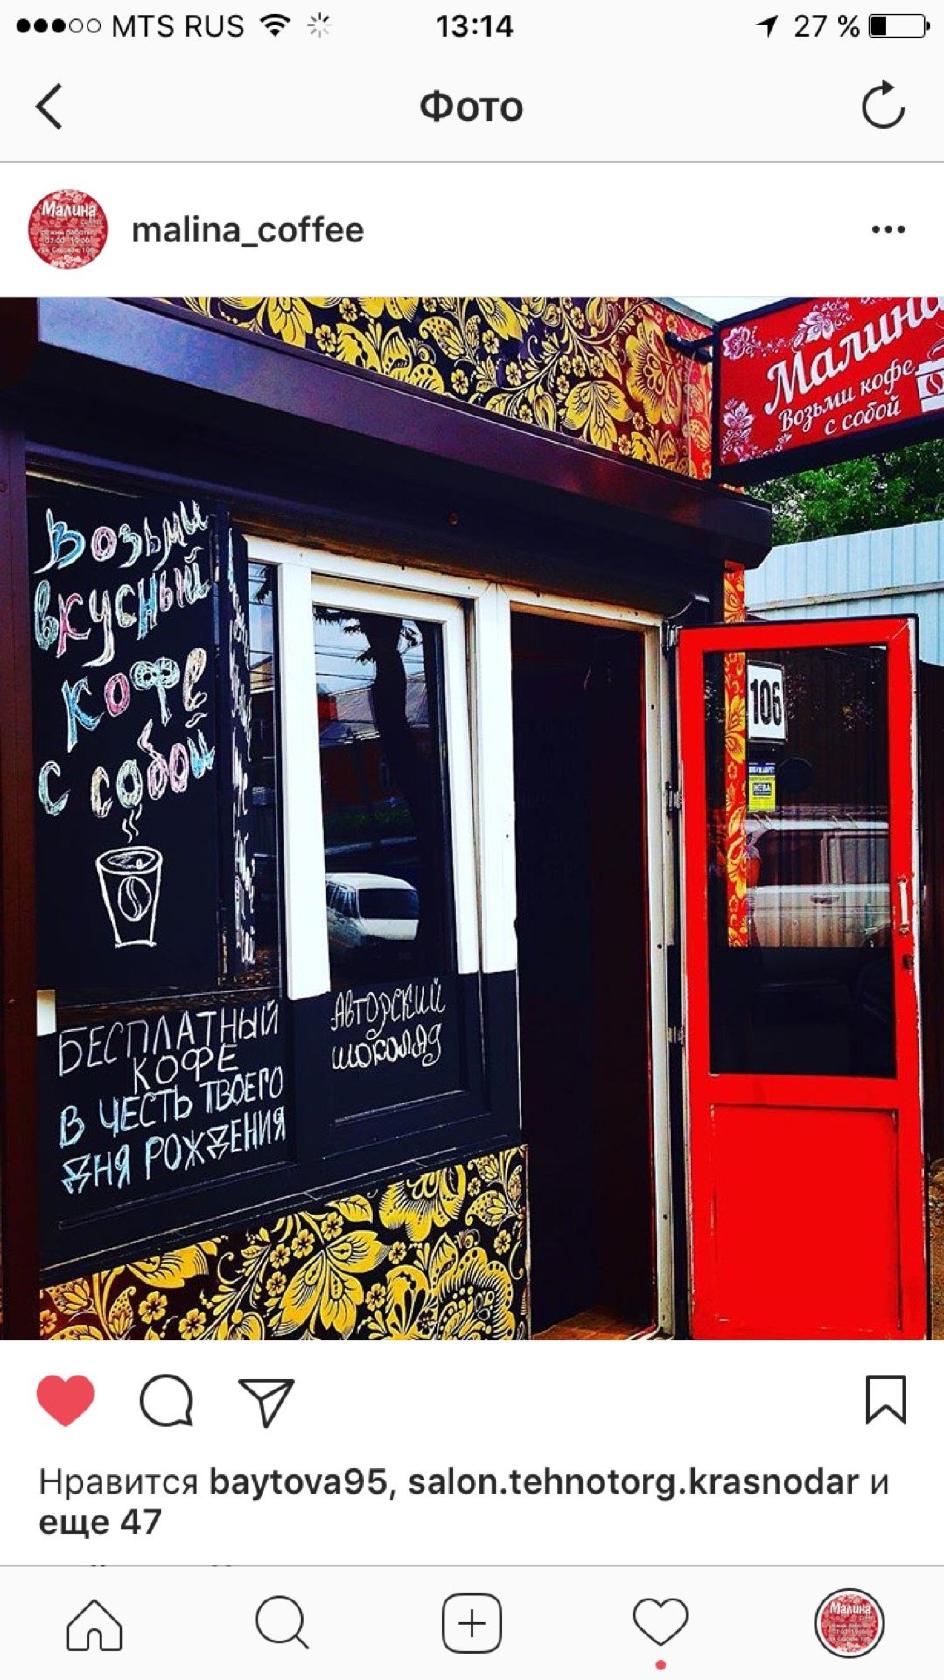 MTS RUS
13:14
27 %
Фото
Малина
malina_coffee
Малина
Возьми кофе
с собой
Возьми
вкусный
кофе
с собой
106
БЕСПЛАТНЫЙ
КОФЕ
В ЧЕСТЬ ТВОЕГО
ДНЯ РОЖДЕНИЯ
АВТОРСКИЙ
ШОКОЛАД
Нравится baytova95, salon.tehnotorg.krasnodar и
еще 47
Малина